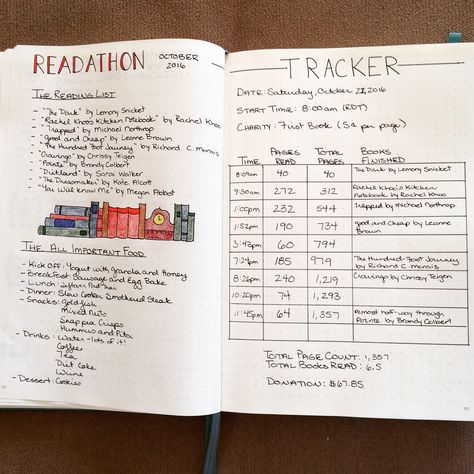 READATHON OCTOBER 2016
THE READING LIST
- "The Dark" by Lemony Snicket
- "Rachel Khoo's Kitchen Notebook" by Rachel Khoo
- "Trapped" by Michael Northrop
- "Good and Cheap" by Leanne Brown
- "The Hundred Foot Journey" by Richard C. Morais
- "Cravings" by Chrissy Teigen
- "Pointe" by Brandy Colbert
- "Dietland" by Sarai Walker
- "The Dressmaker" by Kate Alcott
- "You Will Know Me" by Megan Abbott
THE ALL IMPORTANT FOOD
- Kick Off: Yogurt with Granola and Honey
- Breakfast: Sausage and Egg Bake
- Lunch:
- Dinner: Slow Cooker Smothered Steak
- Snacks: Goldfish
Mixed Nuts
Snap pea Crisps
Hummus and Pita
- Drinks: Water - lots of it!
Coffee
Tea
Diet Coke
Wine
- Dessert: Cookies
TRACKER
DATE: Saturday, October 22, 2016
START TIME: 8:00am (EDT)
CHARITY: First Book (5¢ per page)
TIME PAGES READ TOTAL PAGES BOOKS FINISHED
8:09am 40 40 The Dark by Lemony Snicket
9:30am 272 312 Rachel Khoo's Kitchen Notebook by Rachel Khoo
1:00pm 232 544 Trapped by Michael Northrop
1:52pm 190 734 Good and Cheap by Leanne Brown
3:43pm 60 794
7:24pm 185 979 The Hundred-Foot Journey by Richard C. Morais
8:26pm 240 1,219 Cravings by Chrissy Teigen
10:20pm 74 1,293
11:45pm 64 1,357 Almost half-way through Pointe by Brandy Colbert
TOTAL PAGE COUNT: 1,357
TOTAL BOOKS READ: 6.5
DONATION: $67.85